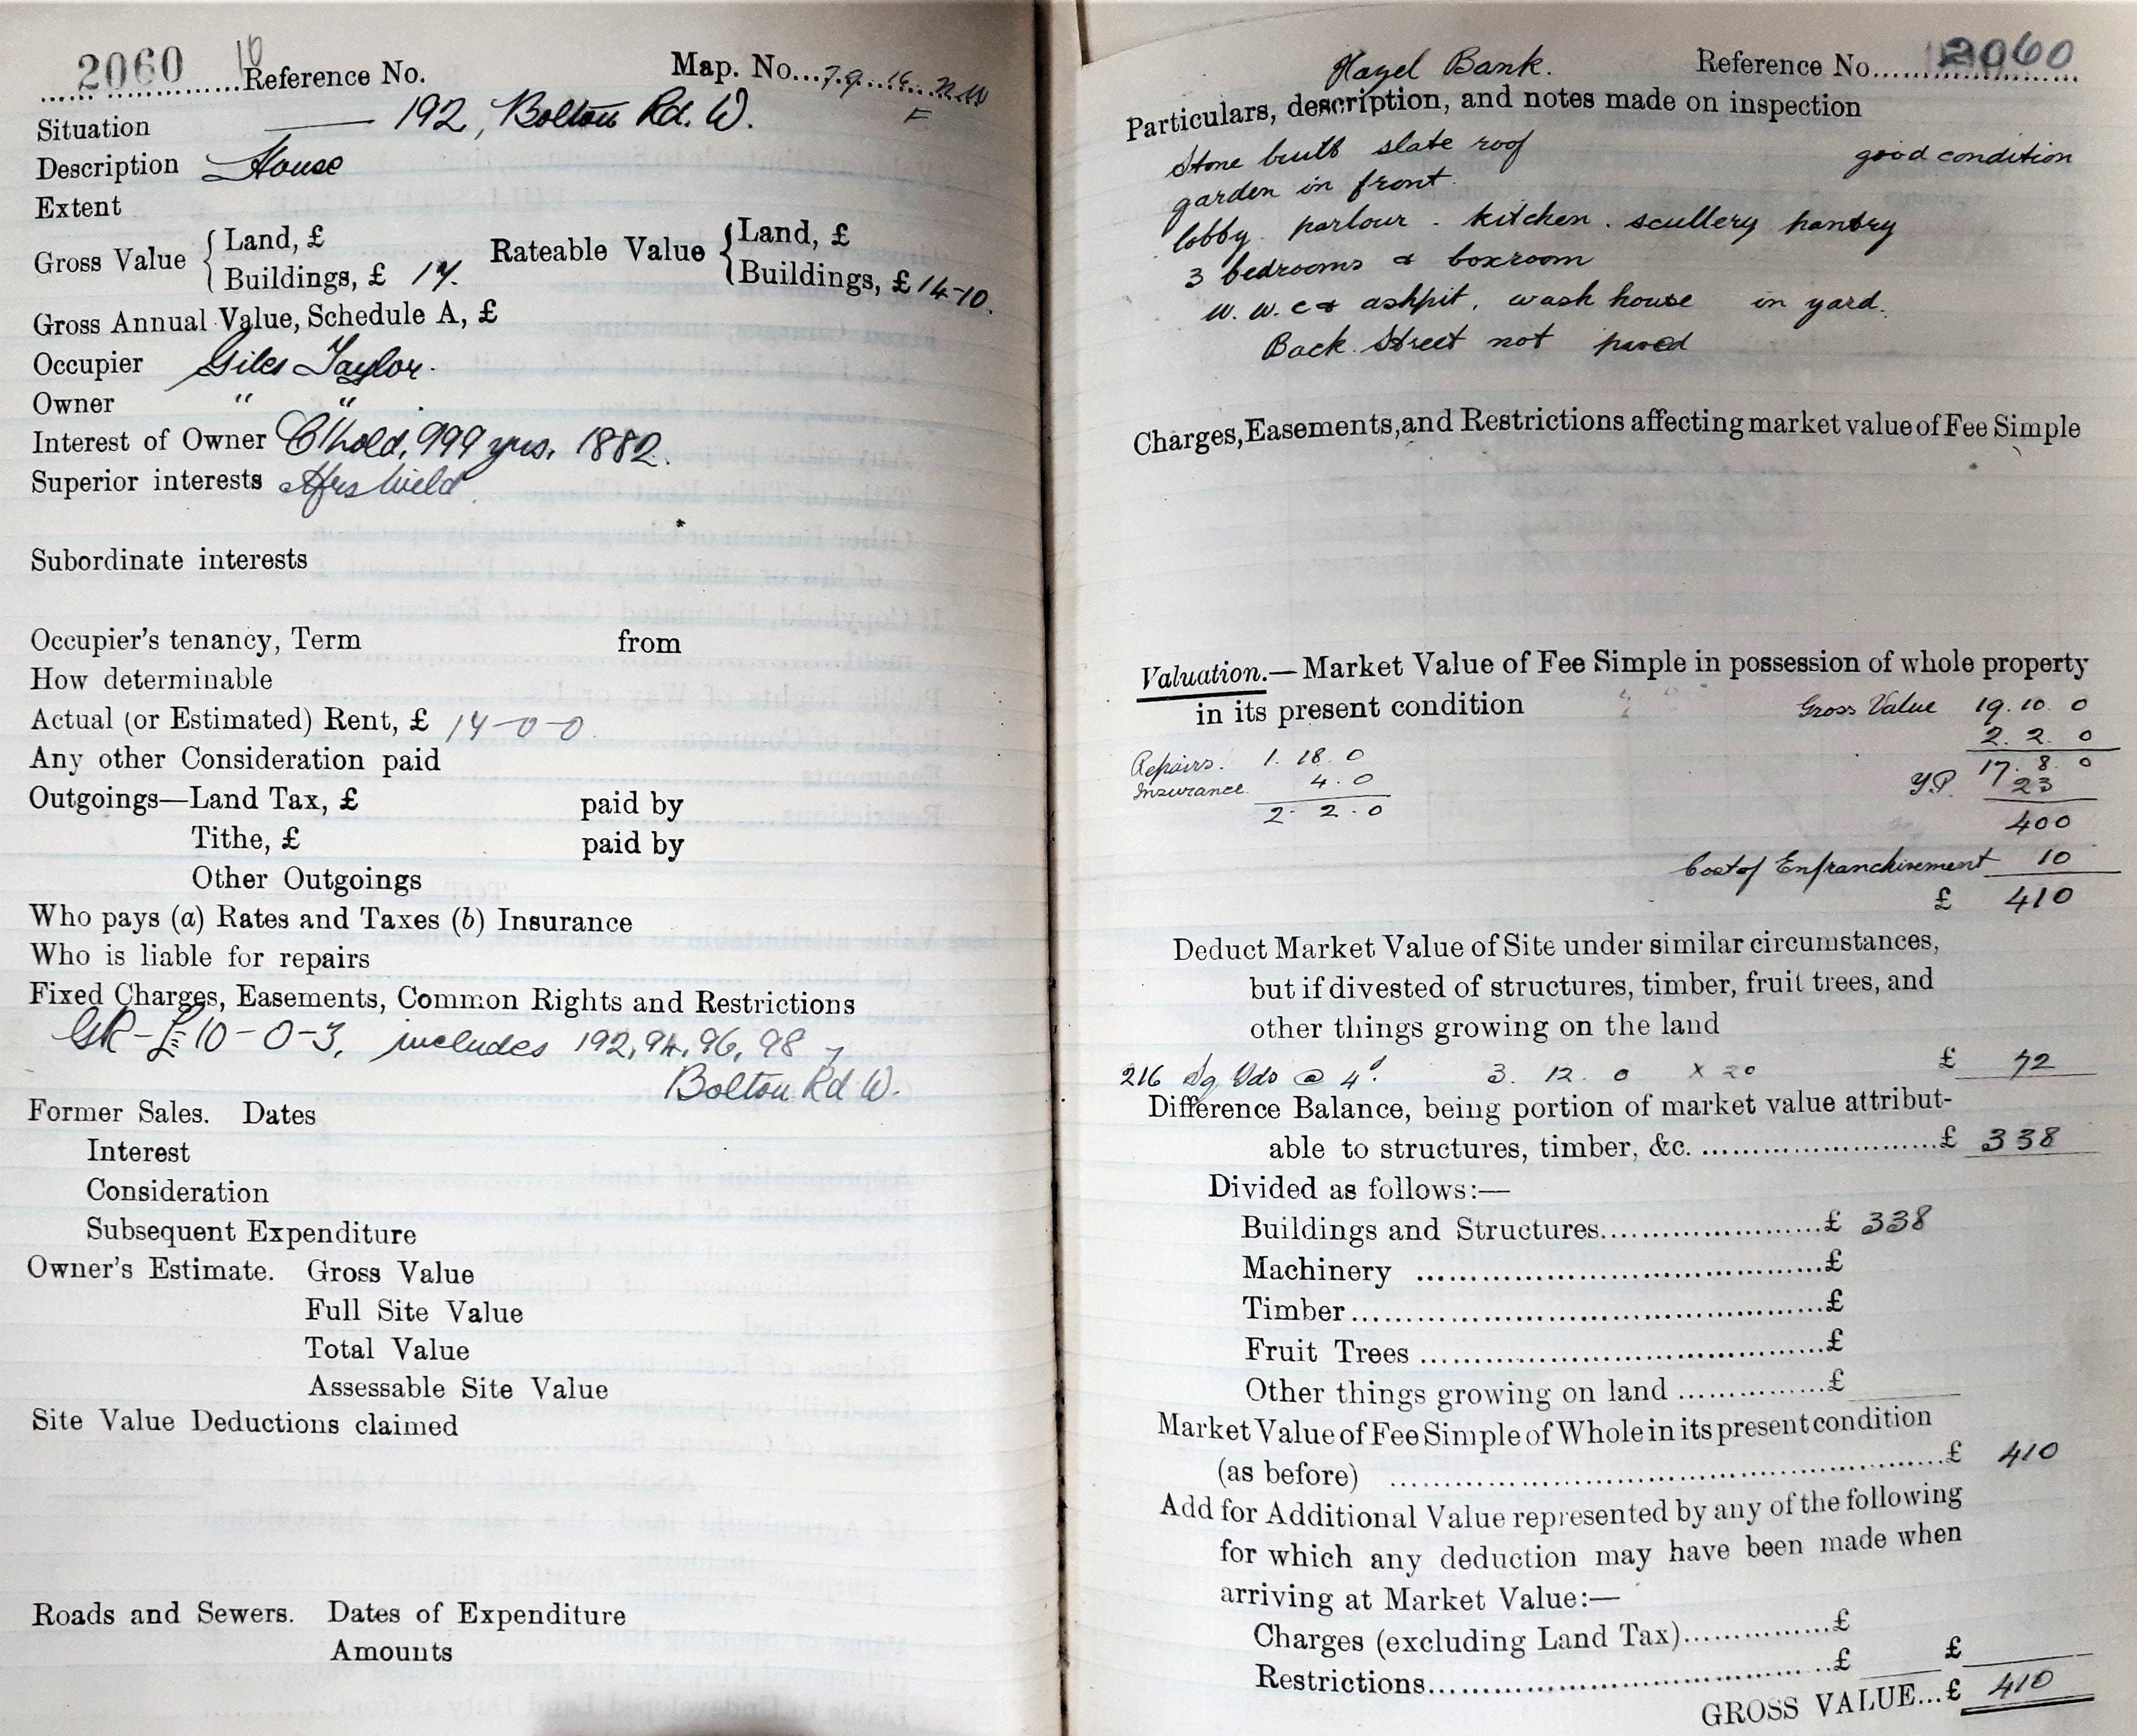 2060 10 Reference No. Map. No... 79.16. N.W
F
Situation 192, Bolton Rd. W.
Description House
Extent
Gross Value { Land, £ Rateable Value { Land, £
Buildings, £ 17. Buildings, £ 14-10.
Gross Annual Value, Schedule A, £
Occupier Giles Taylor.
Owner " "
Interest of Owner C'hold, 999 yrs. 1882.
Superior interests
Subordinate interests
Occupier's tenancy, Term from
How determinable
Actual (or Estimated) Rent, £ 14-0-0.
Any other Consideration paid
Outgoings—Land Tax, £ paid by
Tithe, £ paid by
Other Outgoings
Who pays (a) Rates and Taxes (b) Insurance
Who is liable for repairs
Fixed Charges, Easements, Common Rights and Restrictions
GR-£10-0-3, includes 192, 94, 96, 98
Bolton Rd W.
Former Sales. Dates
Interest
Consideration
Subsequent Expenditure
Owner's Estimate. Gross Value
Full Site Value
Total Value
Assessable Site Value
Site Value Deductions claimed
Roads and Sewers. Dates of Expenditure
Amounts
Hazel Bank. Reference No. 2060
Particulars, description, and notes made on inspection
Stone built slate roof good condition
garden in front.
lobby. parlour. kitchen. scullery pantry
3 bedrooms & boxroom
W. W. C & ashpit, wash house in yard.
Back Street not paved
Charges, Easements, and Restrictions affecting market value of Fee Simple
Valuation.—Market Value of Fee Simple in possession of whole property
in its present condition Gross Value 19. 10. 0
2. 2. 0
Repairs. 1. 18. 0 17. 8. 0
Insurance. 4. 0 Y.P. 23
2. 2. 0 400
Cost of Enfranchisement 10
£ 410
Deduct Market Value of Site under similar circumstances,
but if divested of structures, timber, fruit trees, and
other things growing on the land
216 Sq Yds @ 4d. 3. 12. 0 x 20 £ 72
Difference Balance, being portion of market value attribut-
able to structures, timber, &c. £ 338
Divided as follows:—
Buildings and Structures £ 338
Machinery £
Timber £
Fruit Trees £
Other things growing on land £
Market Value of Fee Simple of Whole in its present condition
(as before) £ 410
Add for Additional Value represented by any of the following
for which any deduction may have been made when
arriving at Market Value:—
Charges (excluding Land Tax) £
Restrictions £ £
GROSS VALUE... £ 410